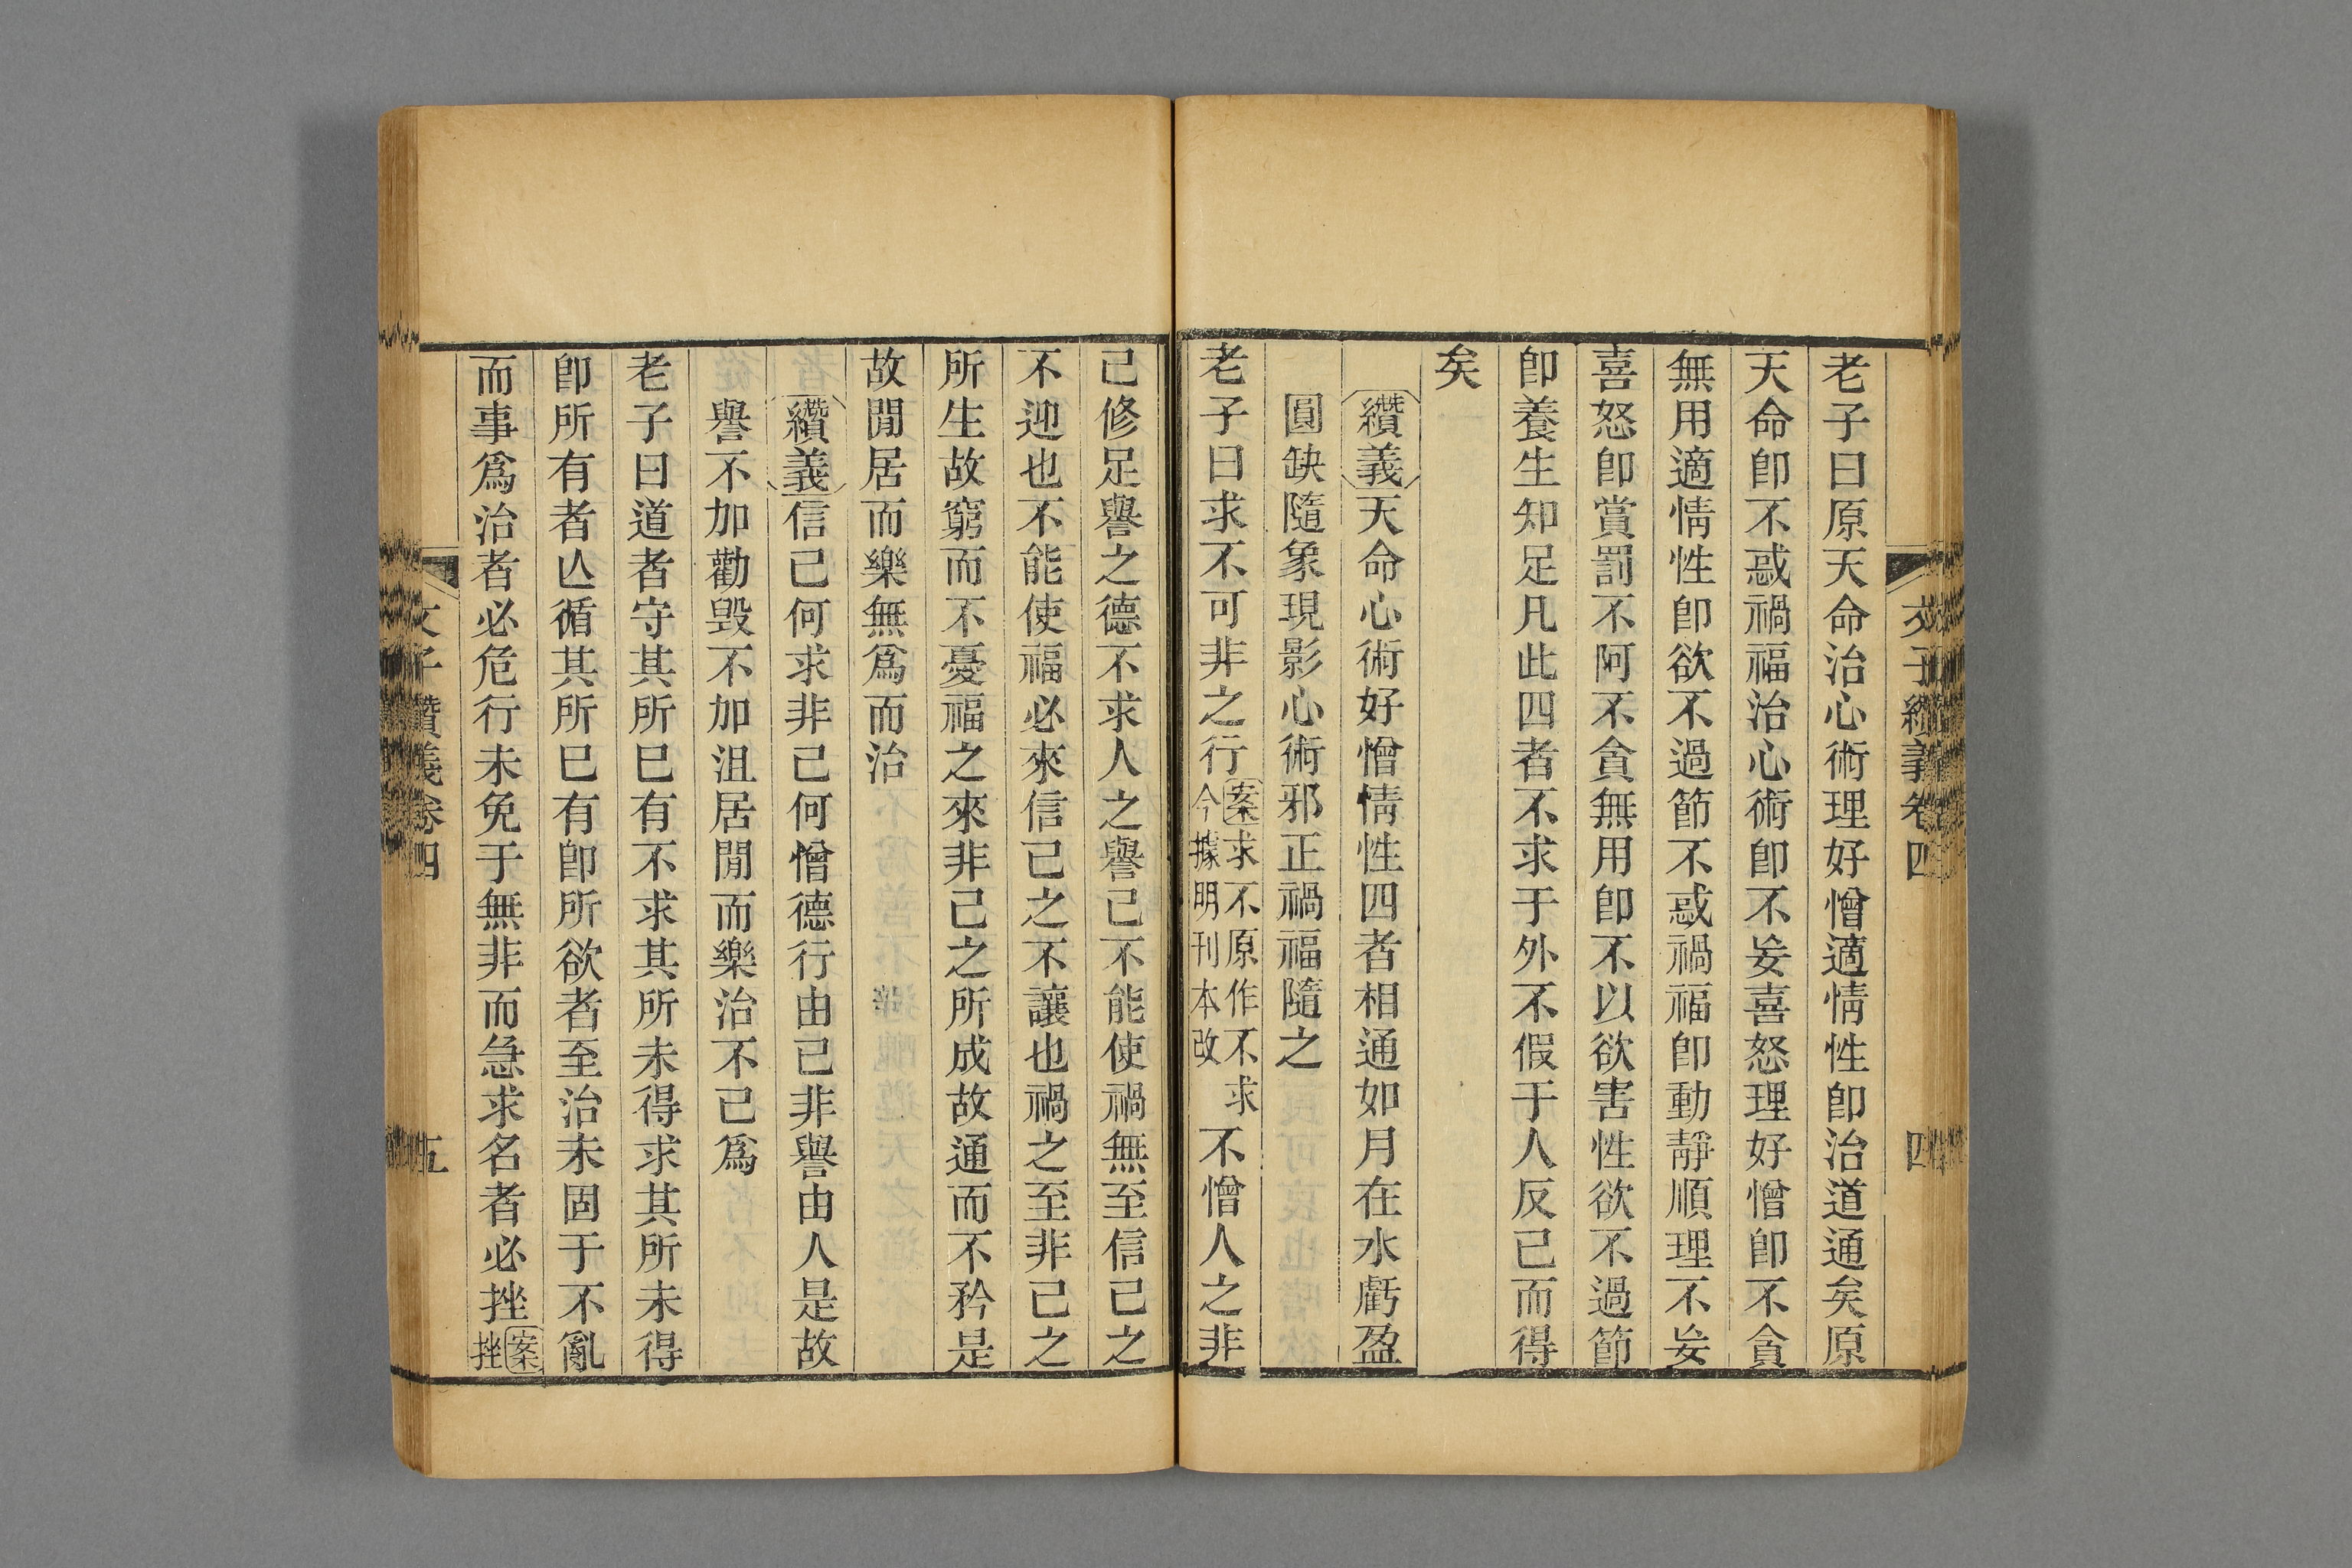 文子纘義卷四　四
老子曰原天命治心術理好憎適情性卽治道通矣原
天命卽不惑禍福治心術卽不妄喜怒理好憎卽不貪
無用適情性卽欲不過節不惑禍福卽動靜順理不妄
喜怒卽賞罰不阿不貪無用卽不以欲害性欲不過節
卽養生知足凡此四者不求于外不假于人反己而得
矣
纘義天命心術好憎情性四者相通如月在水虧盈
圓缺隨象現影心術邪正禍福隨之
老子曰求不可非之行案求不原作不求今據明刊本改不憎人之非
己修足譽之德不求人之譽己不能使禍無至信己之
不迎也不能使福必來信己之不讓也禍之至非己之
所生故窮而不憂福之來非己之所成故通而不矜是
故閒居而樂無爲而治
纘義信己何求非己何憎德行由己非譽由人是故
譽不加勸毀不加沮居閒而樂治不已爲
老子曰道者守其所巳有不求其所未得求其所未得
卽所有者亾循其所巳有卽所欲者至治未固于不亂
而事爲治者必危行未免于無非而急求名者必挫案挫
文子纘義卷四　五